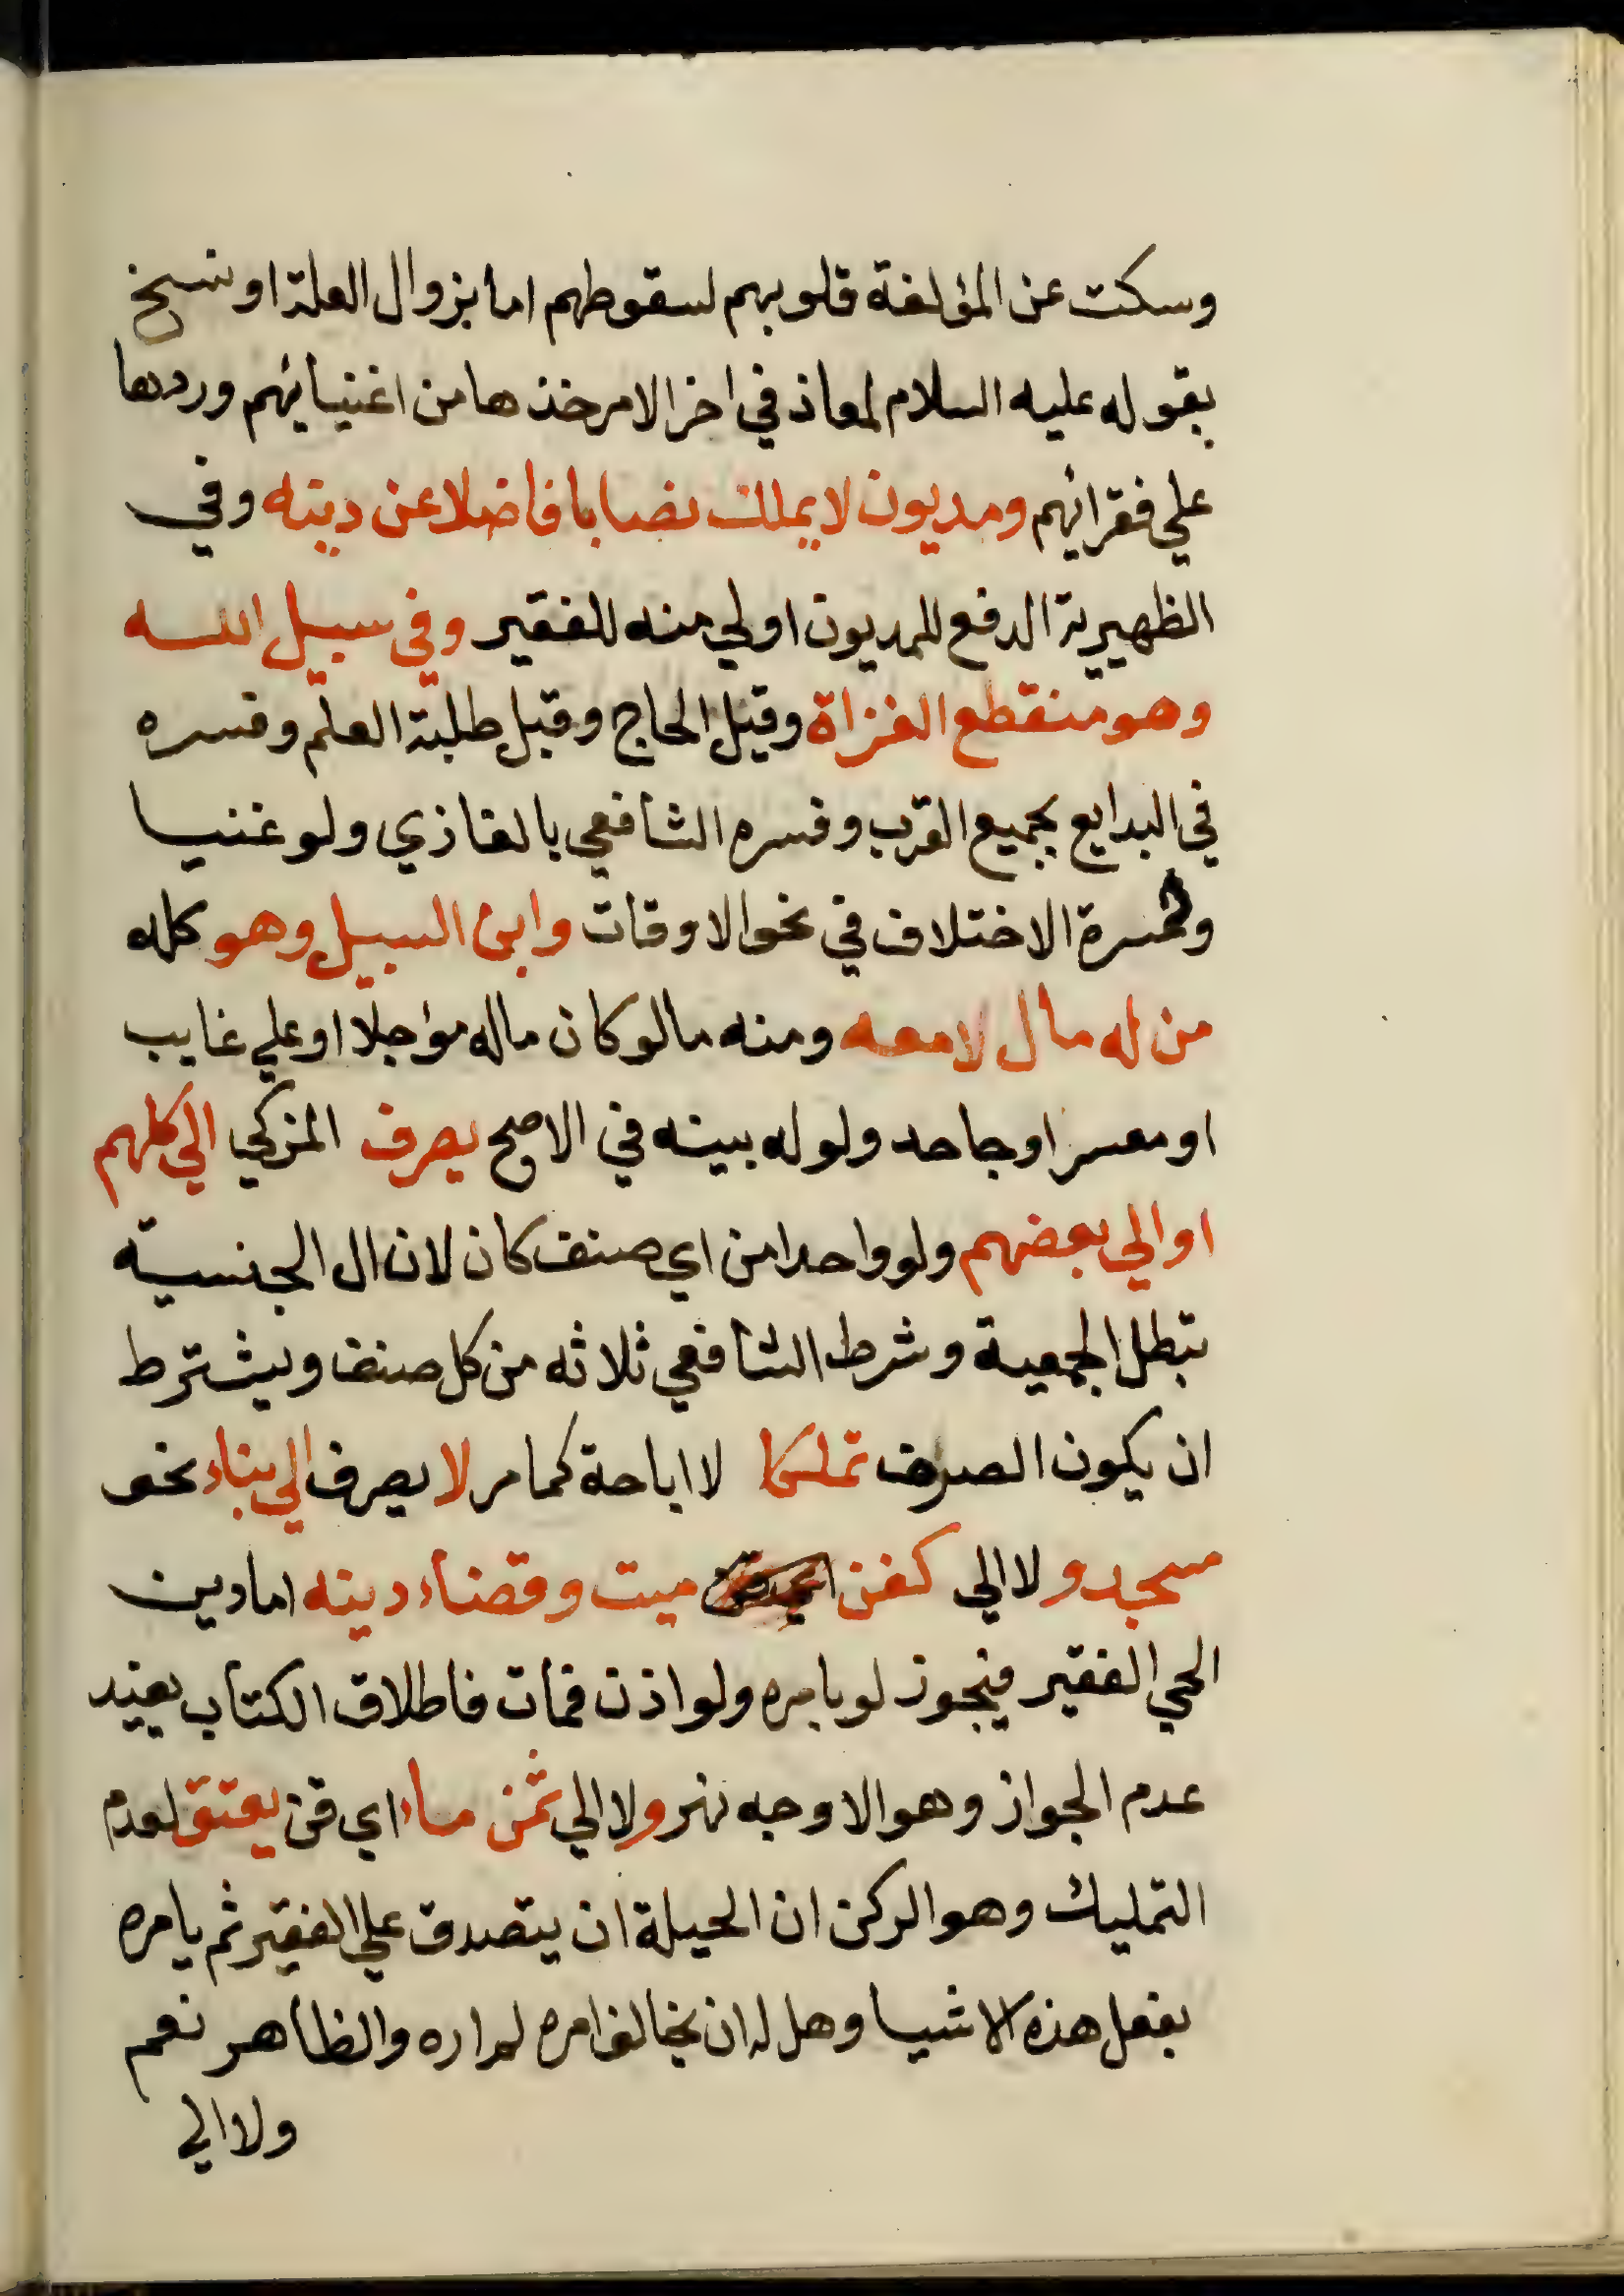 وسكت عن المؤلفة قلوبهم لسقوطهم اما بزوال العلة او نسخ
بقوله عليه السلام لمعاذ في اخر الامر خذها من اغنيائهم وردها
علي فقرائهم ومديون لا يملك نصابا فاضلا عن دينه وفي
الظهيرية الدفع للمديون اولي منه للفقير وفي سبيل الله
وهو منقطع الغزاة وقيل الحاج وقيل طلبة العلم وفسره
في البدايع بجميع القرب وفسره الشافعي بالغازي ولو غنيا
وثمرة الاختلاف في نحو الاوقات وابن السبيل وهو كله
من له مال لا معه ومنه ما لو كان ماله مؤجلا او علي غايب
او معسر او جاحد ولو له بينه في الاصح يصرف المزكي الي كلهم
او الي بعضهم ولو واحدا من اي صنف كان لان ال الجنسية
تبطل الجمعية وشرط الشافعي ثلاثه من كل صنف ويشترط
ان يكون الصرف تمليكا لا اباحة كما مر لا يصرف الي بناء نحو
مسجد ولا الي كفن ميت وقضاء دينه اما دين
الحي الفقير فيجوز لو بامره ولو اذن فمات فاطلاق الكتاب يفيد
عدم الجواز وهو الاوجه نهر ولا الي ثمن ماء اي قن يعتق لعدم
التمليك وهو الركن ان الحيلة ان يتصدق علي الفقير ثم يامره
بفعل هذه الاشيا وهل له ان يخالف امره لم اره والظاهر نعم
ولا الي